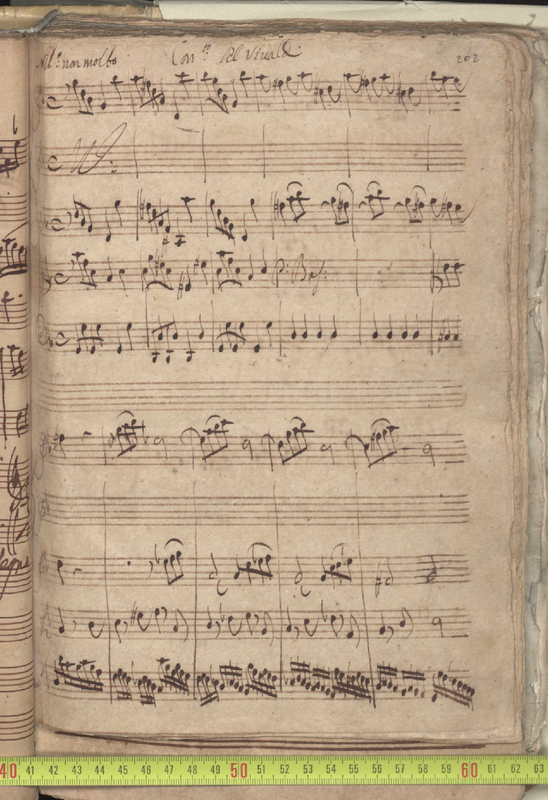 All.º non molto Con.to Del Vivaldi 202
40 41 42 43 44 45 46 47 48 49 50 51 52 53 54 55 56 57 58 59 60 61 62 63